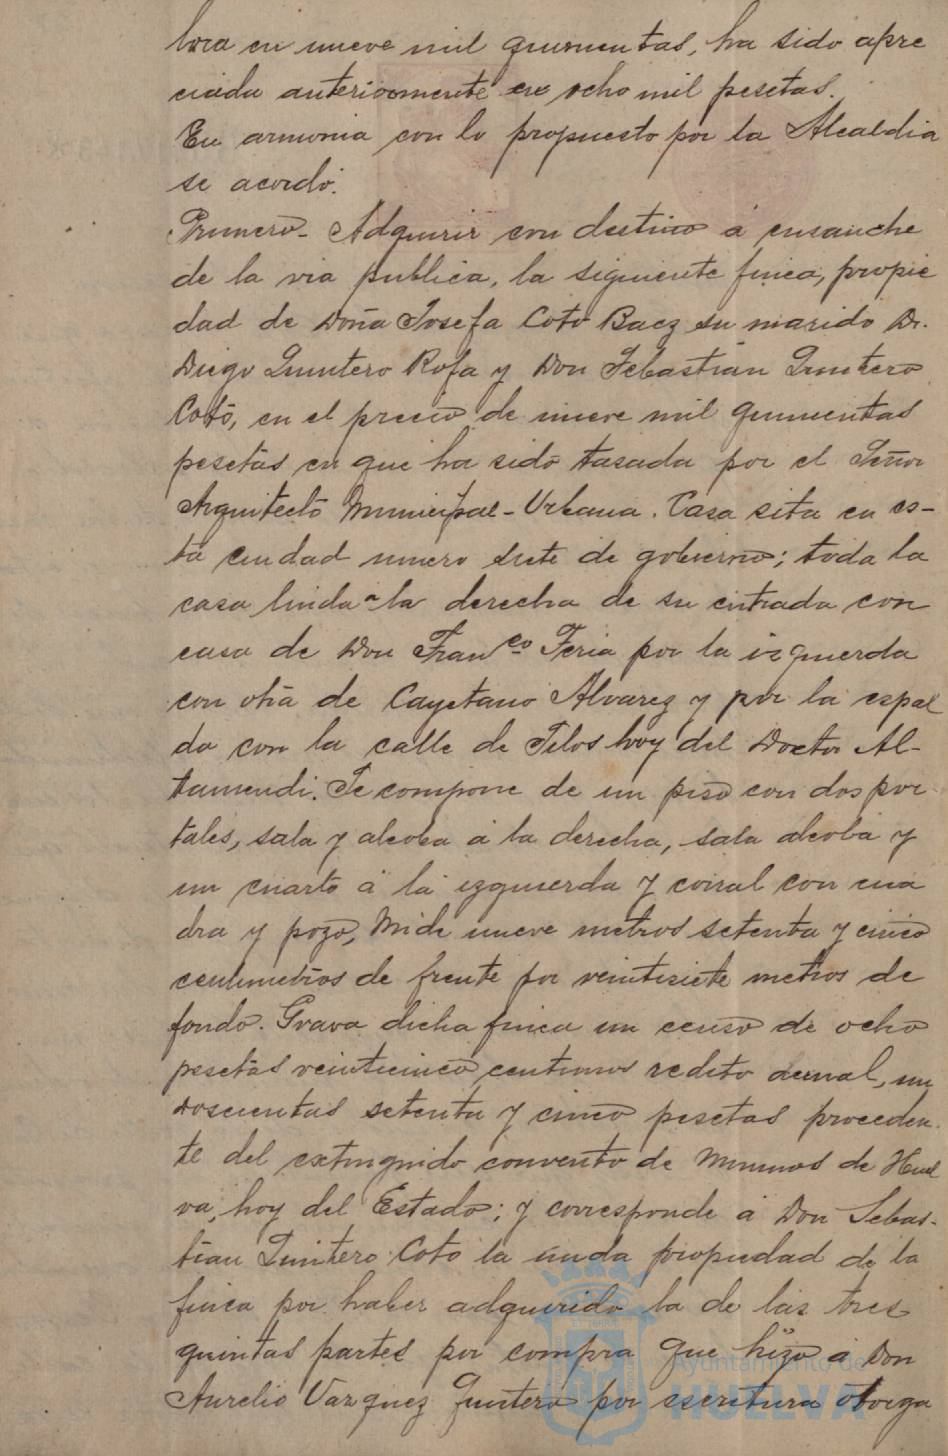 lora en nueve mil quinientas, ha sido apre
ciada anteriormente en ocho mil pesetas.
En armonia con lo propuesto por la Alcaldia
se acordó:
Primero - Adquirir con destino á ensanche
de la via publica, la siguiente finca, propie
dad de Doña Josefa Coto Baez su marido Dn.
Diego Quintero Rofa y Don Sebastian Quintero
Coto, en el precio de nueve mil quinientas
pesetas en que ha sido tasada por el Señor
Arquitecto Municipal - Urbana. Casa sita en es-
ta ciudad numero siete de gobierno; toda la
casa linda a la derecha de su entrada con
casa de Don Franco. Feria por la izquierda
con otra de Cayetano Alvarez y por la espal
da con la calle de Tilos hoy del Doctor Al-
tamendi. Se compone de un piso con dos por
tales, sala y alcoba á la derecha, sala alcoba y
un cuarto á la izquierda y corral con cua
dra y pozo, Mide nueve metros setenta y cinco
centimetros de frente por veintisiete metros de
fondo. Grava dicha finca un censo de ocho
pesetas veinticinco centimos redito
doscientas setenta y cinco pesetas proceden-
te del extinguido convento de Minimos de Huel
va, hoy del Estado; y corresponde á Don Sebas-
tian Quintero Coto la nuda propiedad de la
finca por haber adquirido la de las tres
quintas partes por compra que hizo á Don
Aurelio Vazquez Quintero por escritura otorga
Ayuntamiento de
HUELVA